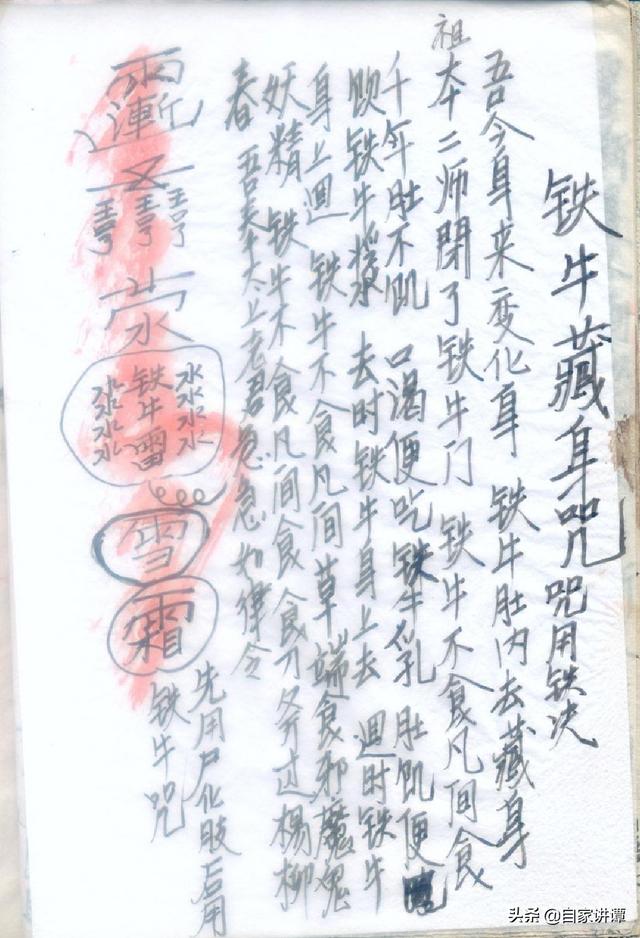 铁牛藏身咒 咒用铁决
吾今身来变化身 铁牛肚内去藏身
祖本二师閉了铁牛门 铁牛不食凡间食
千年肚不饥 口渴便吃铁牛乳 肚饥便
饮铁牛浆 去时铁牛身上去 迴时铁牛
身上迴 铁牛不食凡间草 端食邪魔鬼
妖精 铁牛不食凡间食 食刀斧过楊柳
春 吾奉太上老君急急如律令
雪
霜
铁牛雷
水水水水
水水水水
先用尸化肢后用
铁牛咒
头条 @自家讲谭